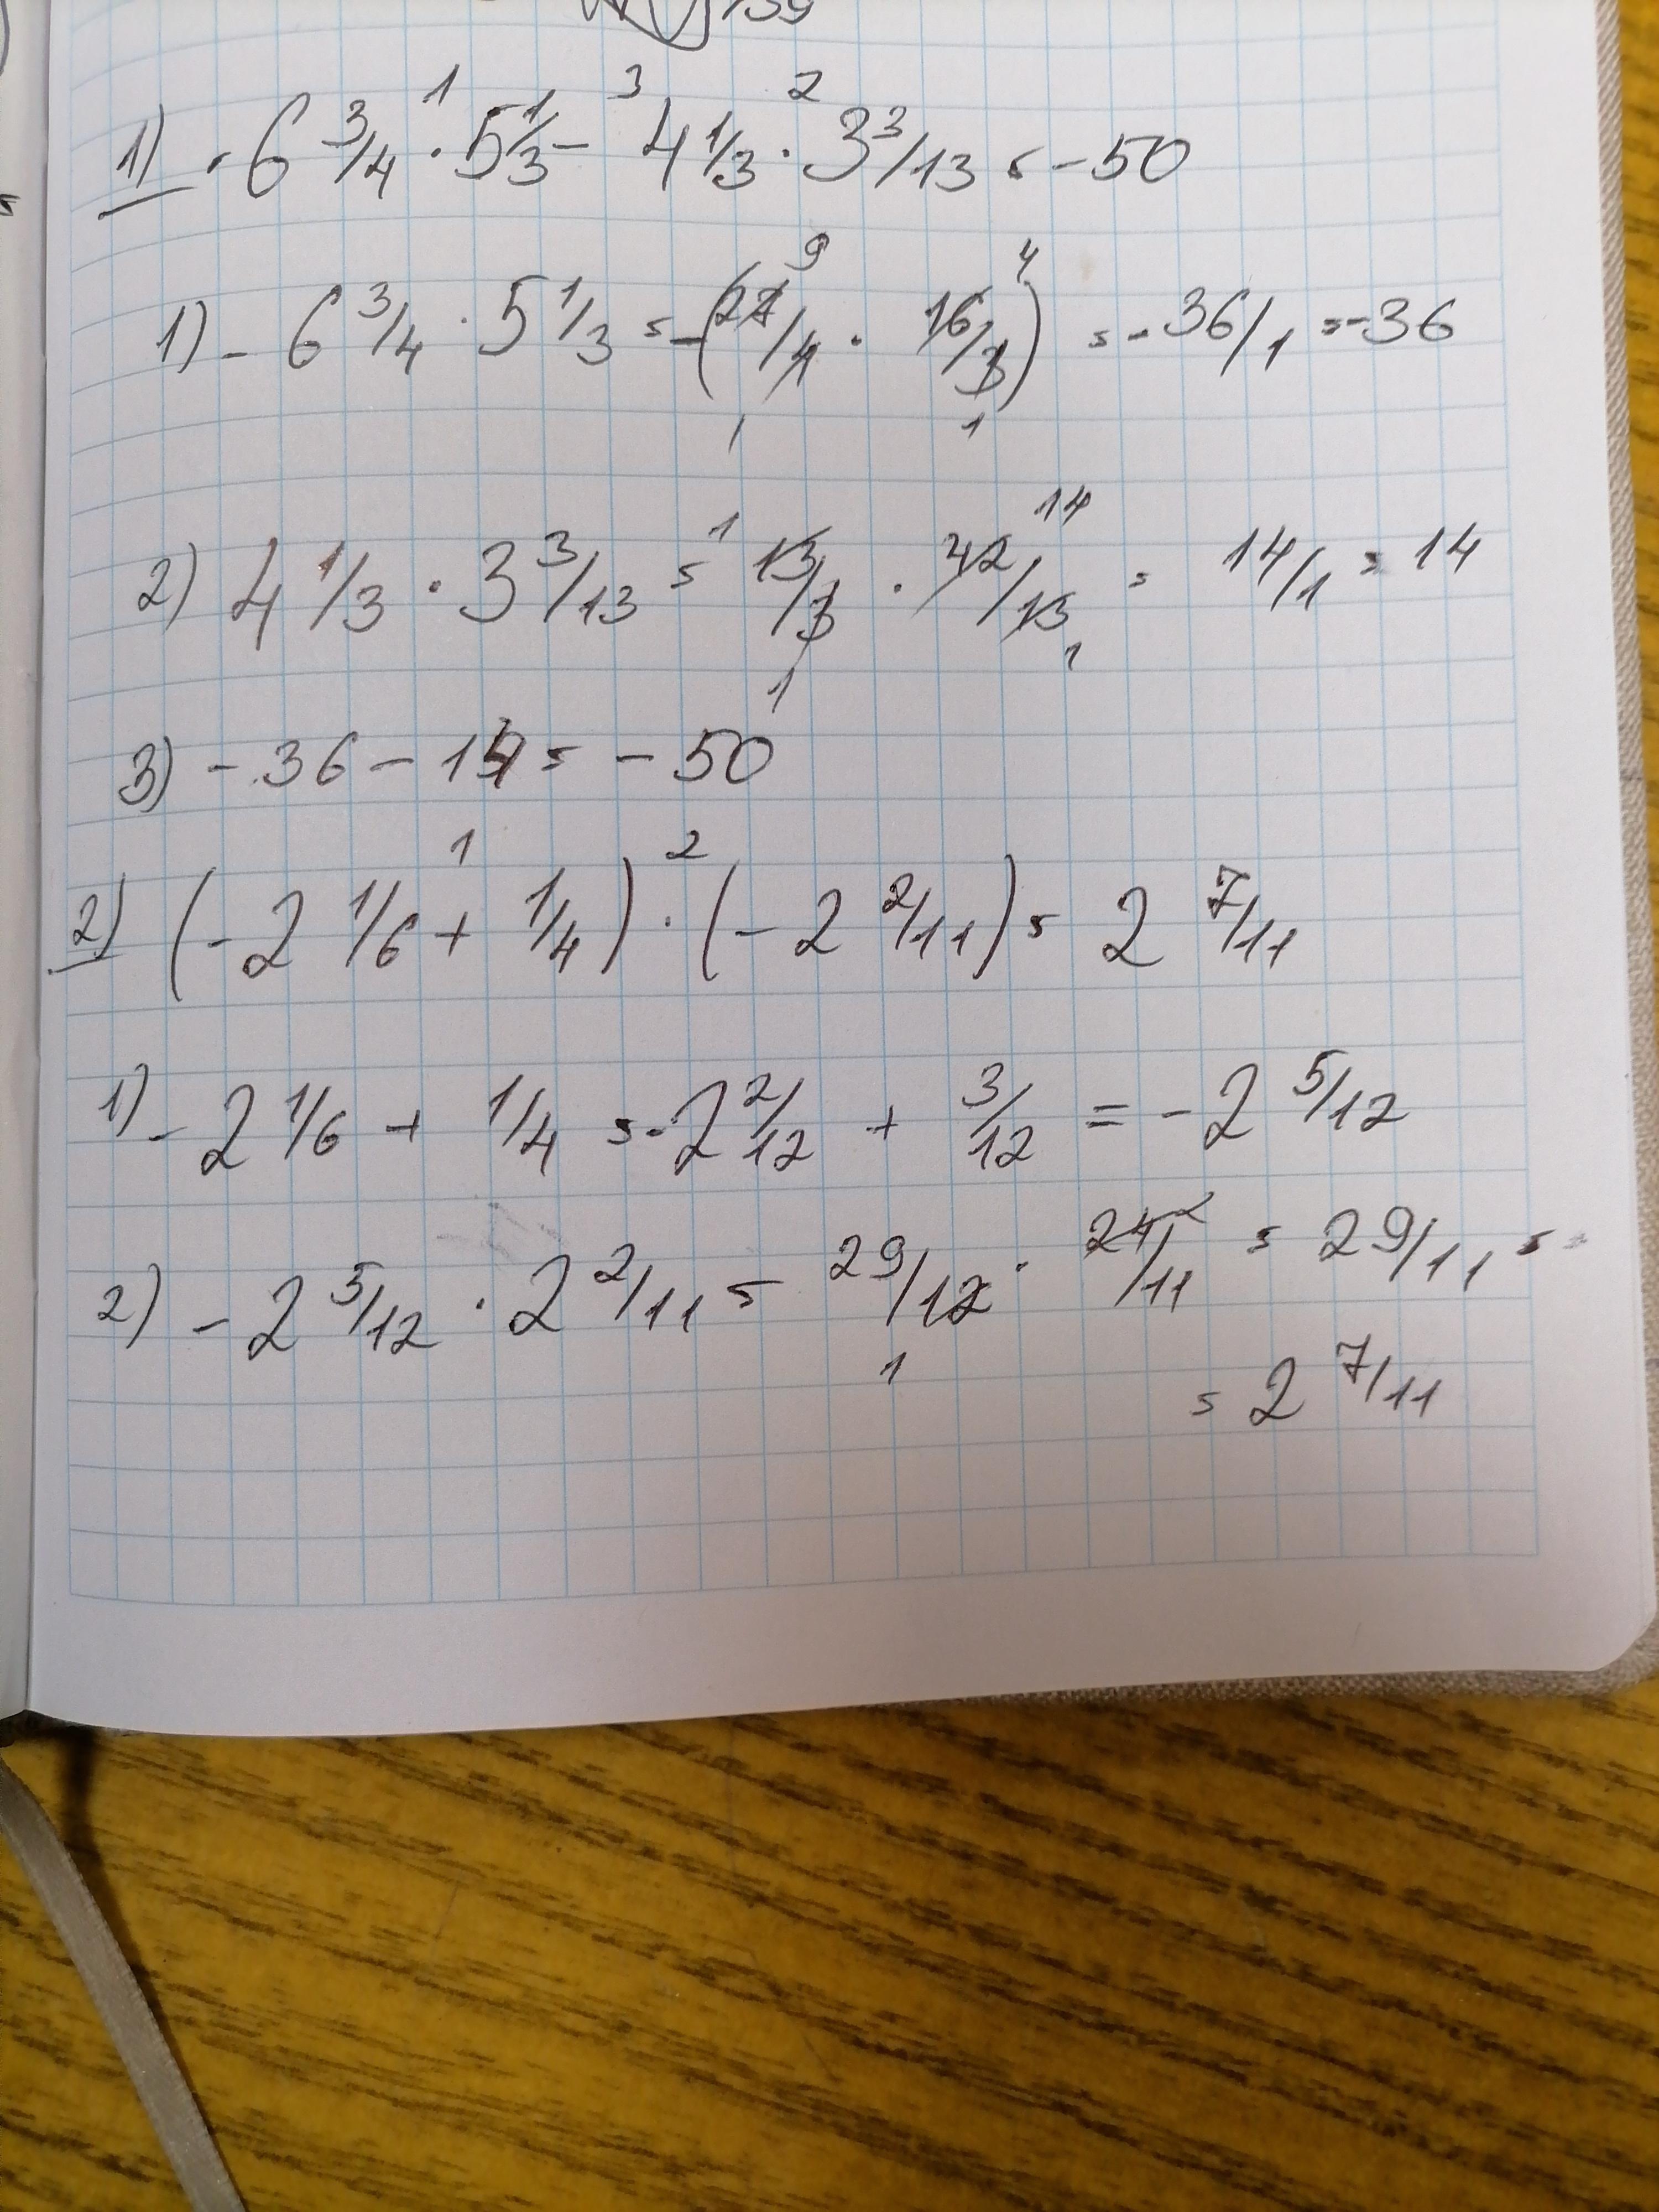 139
1) -6 3/4 · 5 1/3 - 4 1/3 · 3 3/13 = -50
1 3 2
1) - 6 3/4 · 5 1/3 = -(27/4 · 16/3) = - 36/1 = -36
9 4
1 1
2) 4 1/3 · 3 3/13 = 13/3 · 42/13 = 14/1 = 14
1 14
1 1
3) - 36 - 14 = - 50
1 2
2) (- 2 1/6 + 1/4) · (- 2 2/11) = 2 7/11
1) - 2 1/6 + 1/4 = -2 2/12 + 3/12 = - 2 5/12
2) - 2 5/12 · 2 2/11 = 29/12 · 24/11 = 29/11 =
2
1
= 2 7/11